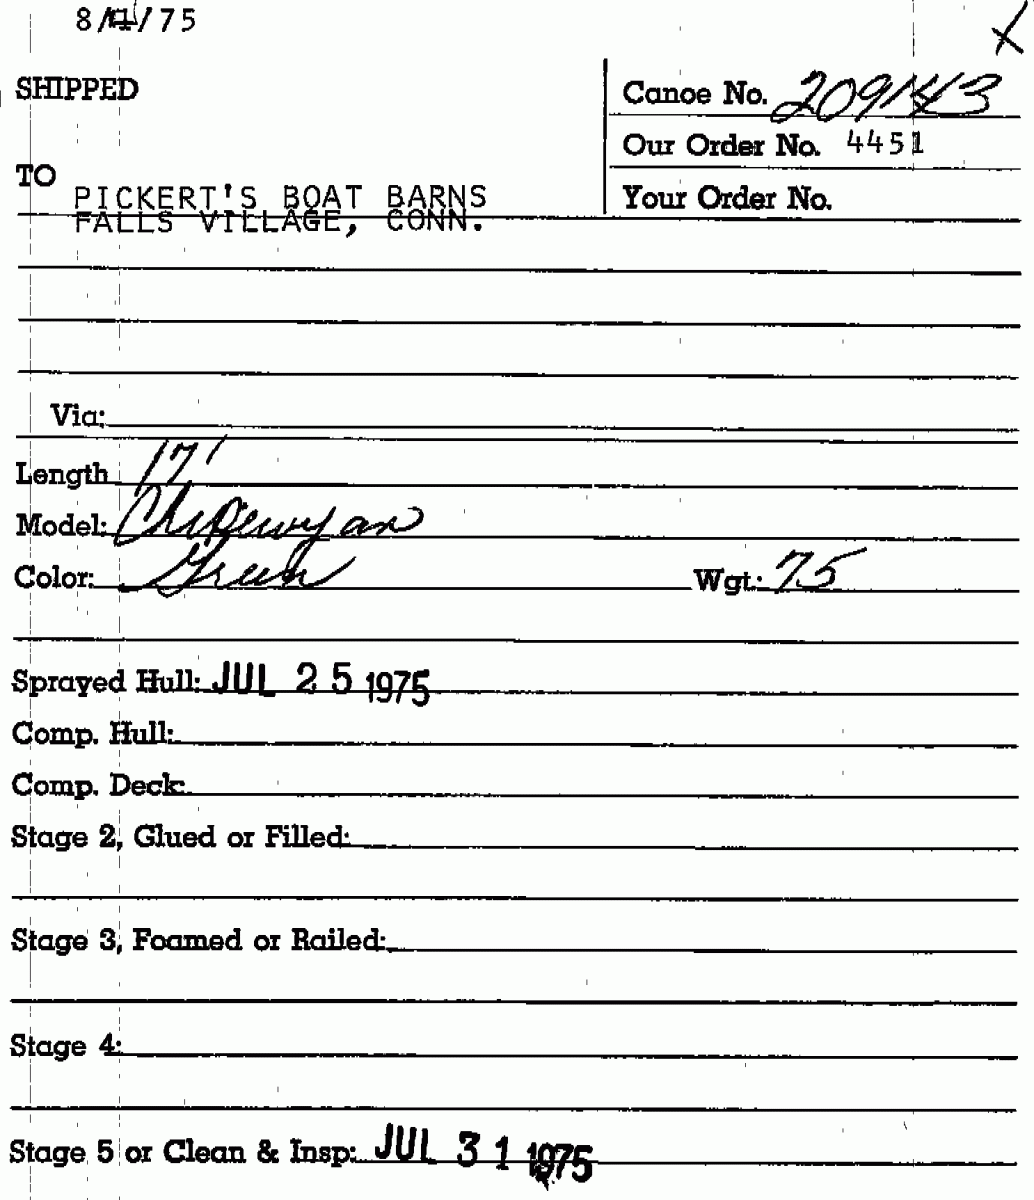 SHIPPED
Canoe No. 209143
Our Order No. 4451
TO
PICKERT'S BOAT BARNS
Your Order No.
FALLS VILLAGE, CONN.
Via:
Length 17'
Model: Chipewyan
Color: Green Wgt.: 75
Sprayed Hull: JUL 25 1975
Comp. Hull:
Comp. Deck:
Stage 2, Glued or Filled:
Stage 3, Foamed or Railed:
Stage 4:
Stage 5 or Clean & Insp: JUL 31 1975